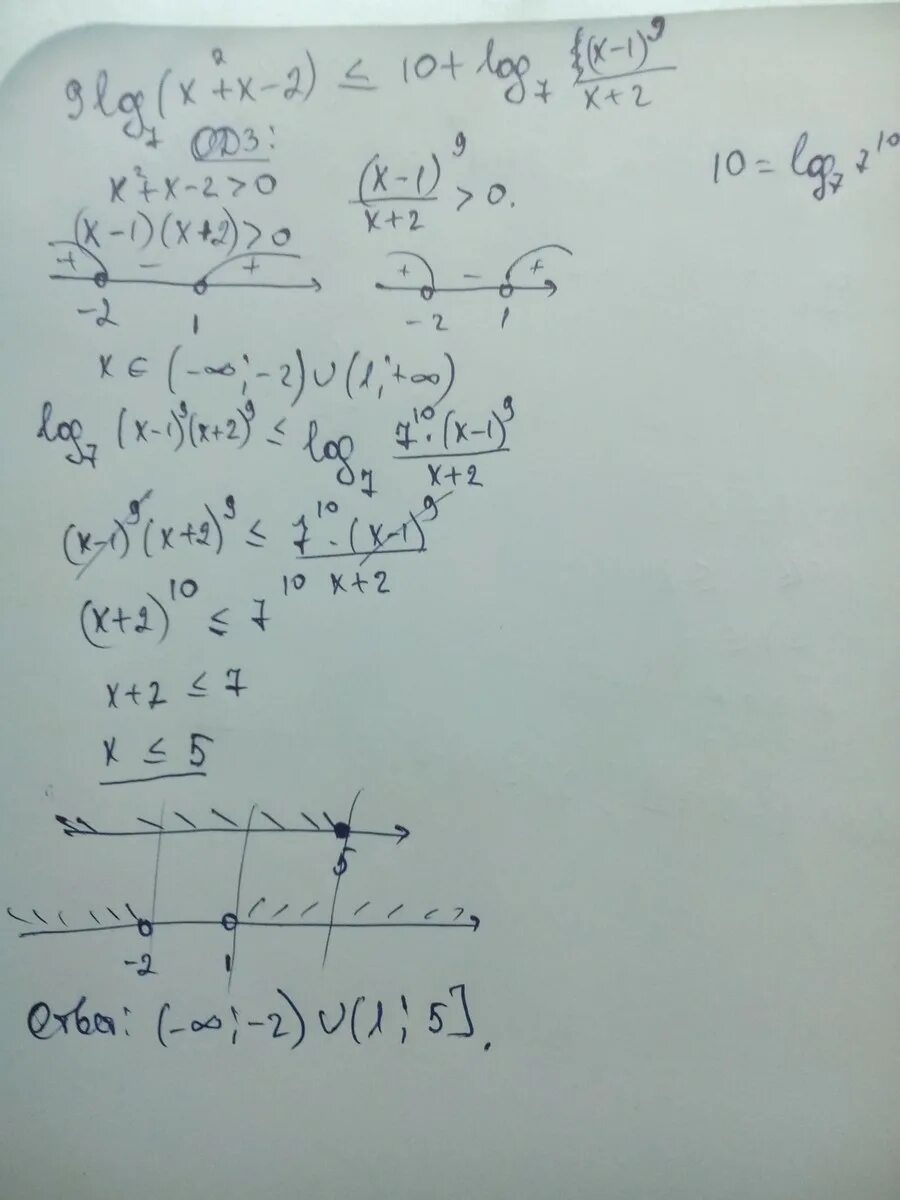 9log₇(x²+x-2) ≤ 10+log₇ (x-1)⁹/(x+2)
ОДЗ:
10 = log₇ 7¹⁰
x²+x-2>0
(x-1)⁹/(x+2) > 0.
(x-1)(x+2)>0
+ - +
-2 1
+ - +
-2 1
x ∈ (-∞;-2)∪(1;+∞)
log₇ (x-1)⁹(x+2)⁹ ≤ log₇ 7¹⁰·(x-1)⁹/(x+2)
(x-1)⁹(x+2)⁹ ≤ 7¹⁰·(x-1)⁹/(x+2)
(x+2)¹⁰ ≤ 7¹⁰
x+2 ≤ 7
x ≤ 5
5
-2 1
Ответ: (-∞;-2)∪(1;5].